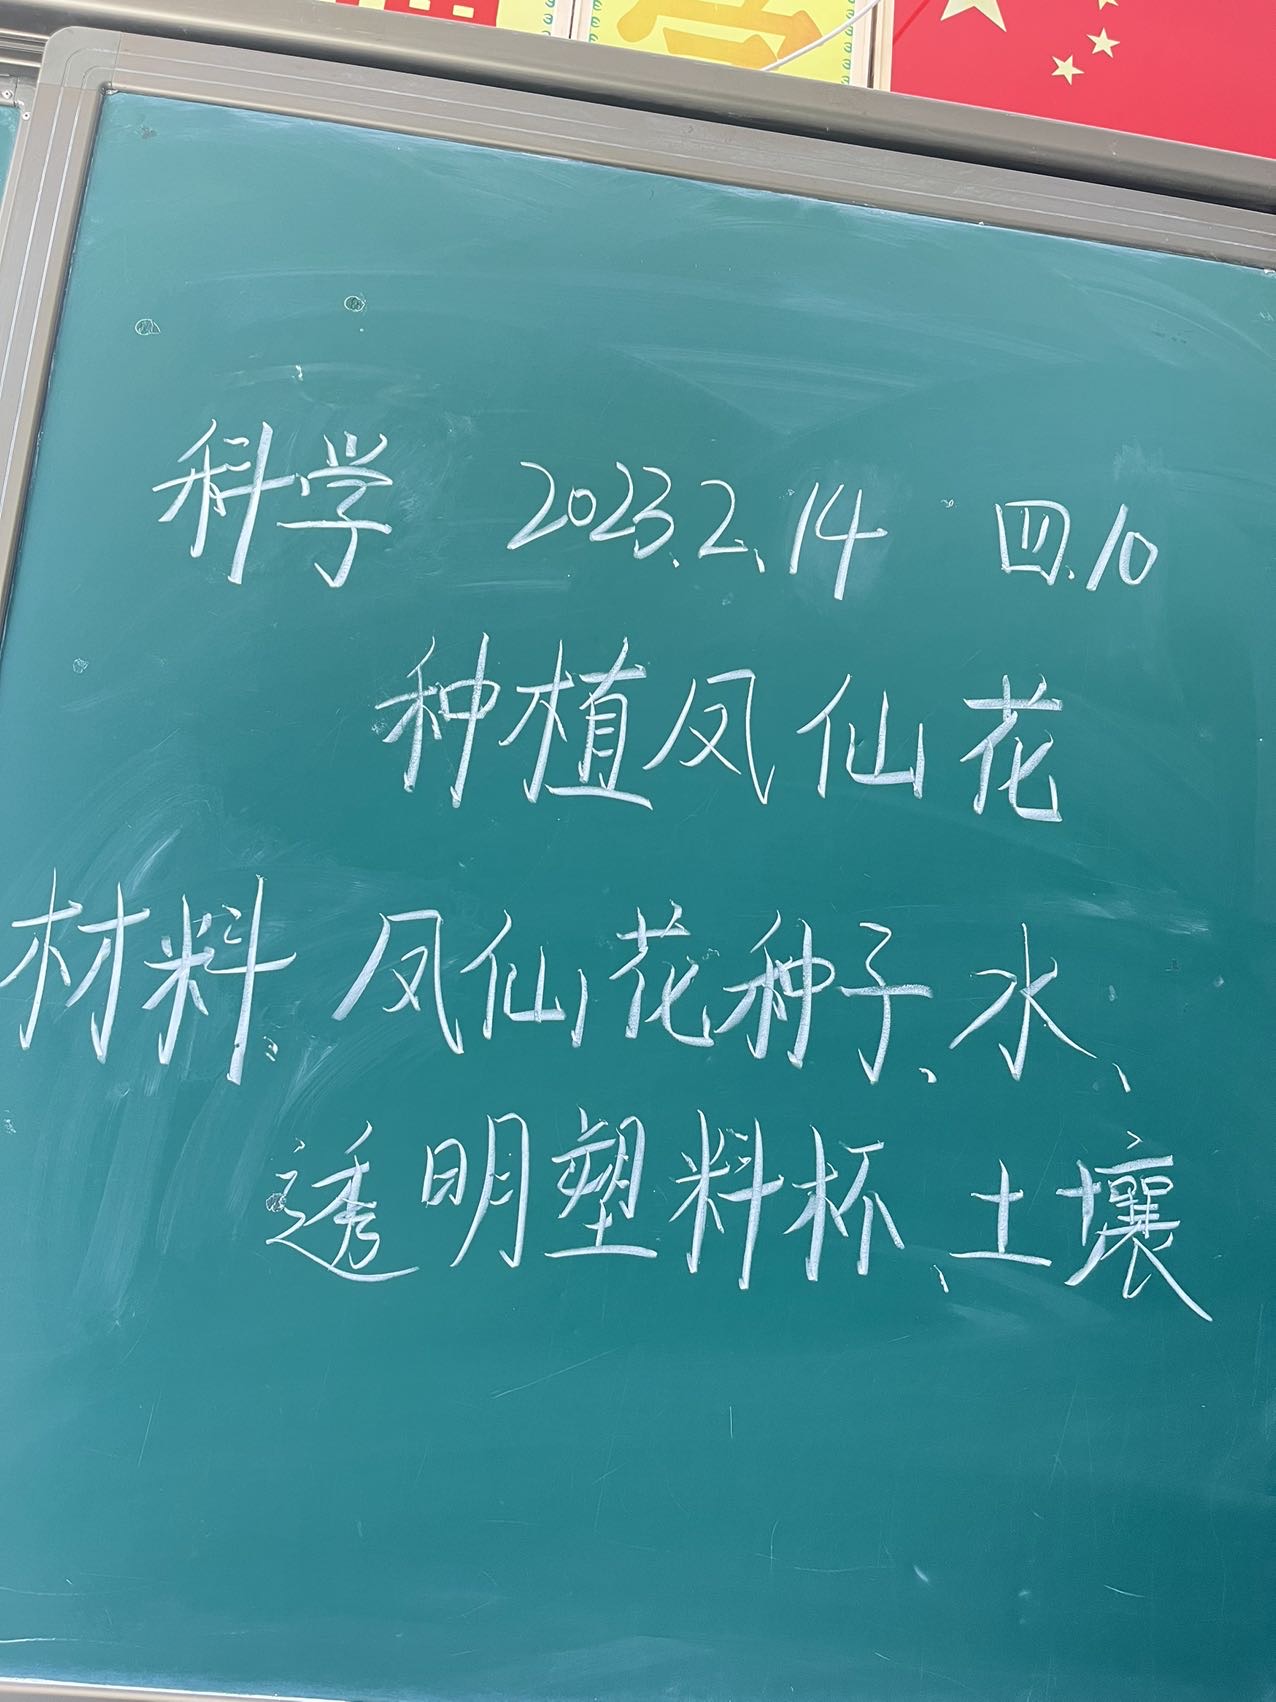 科学 2023.2.14 四.10
种植凤仙花
材料:凤仙花种子、水、
透明塑料杯、土壤